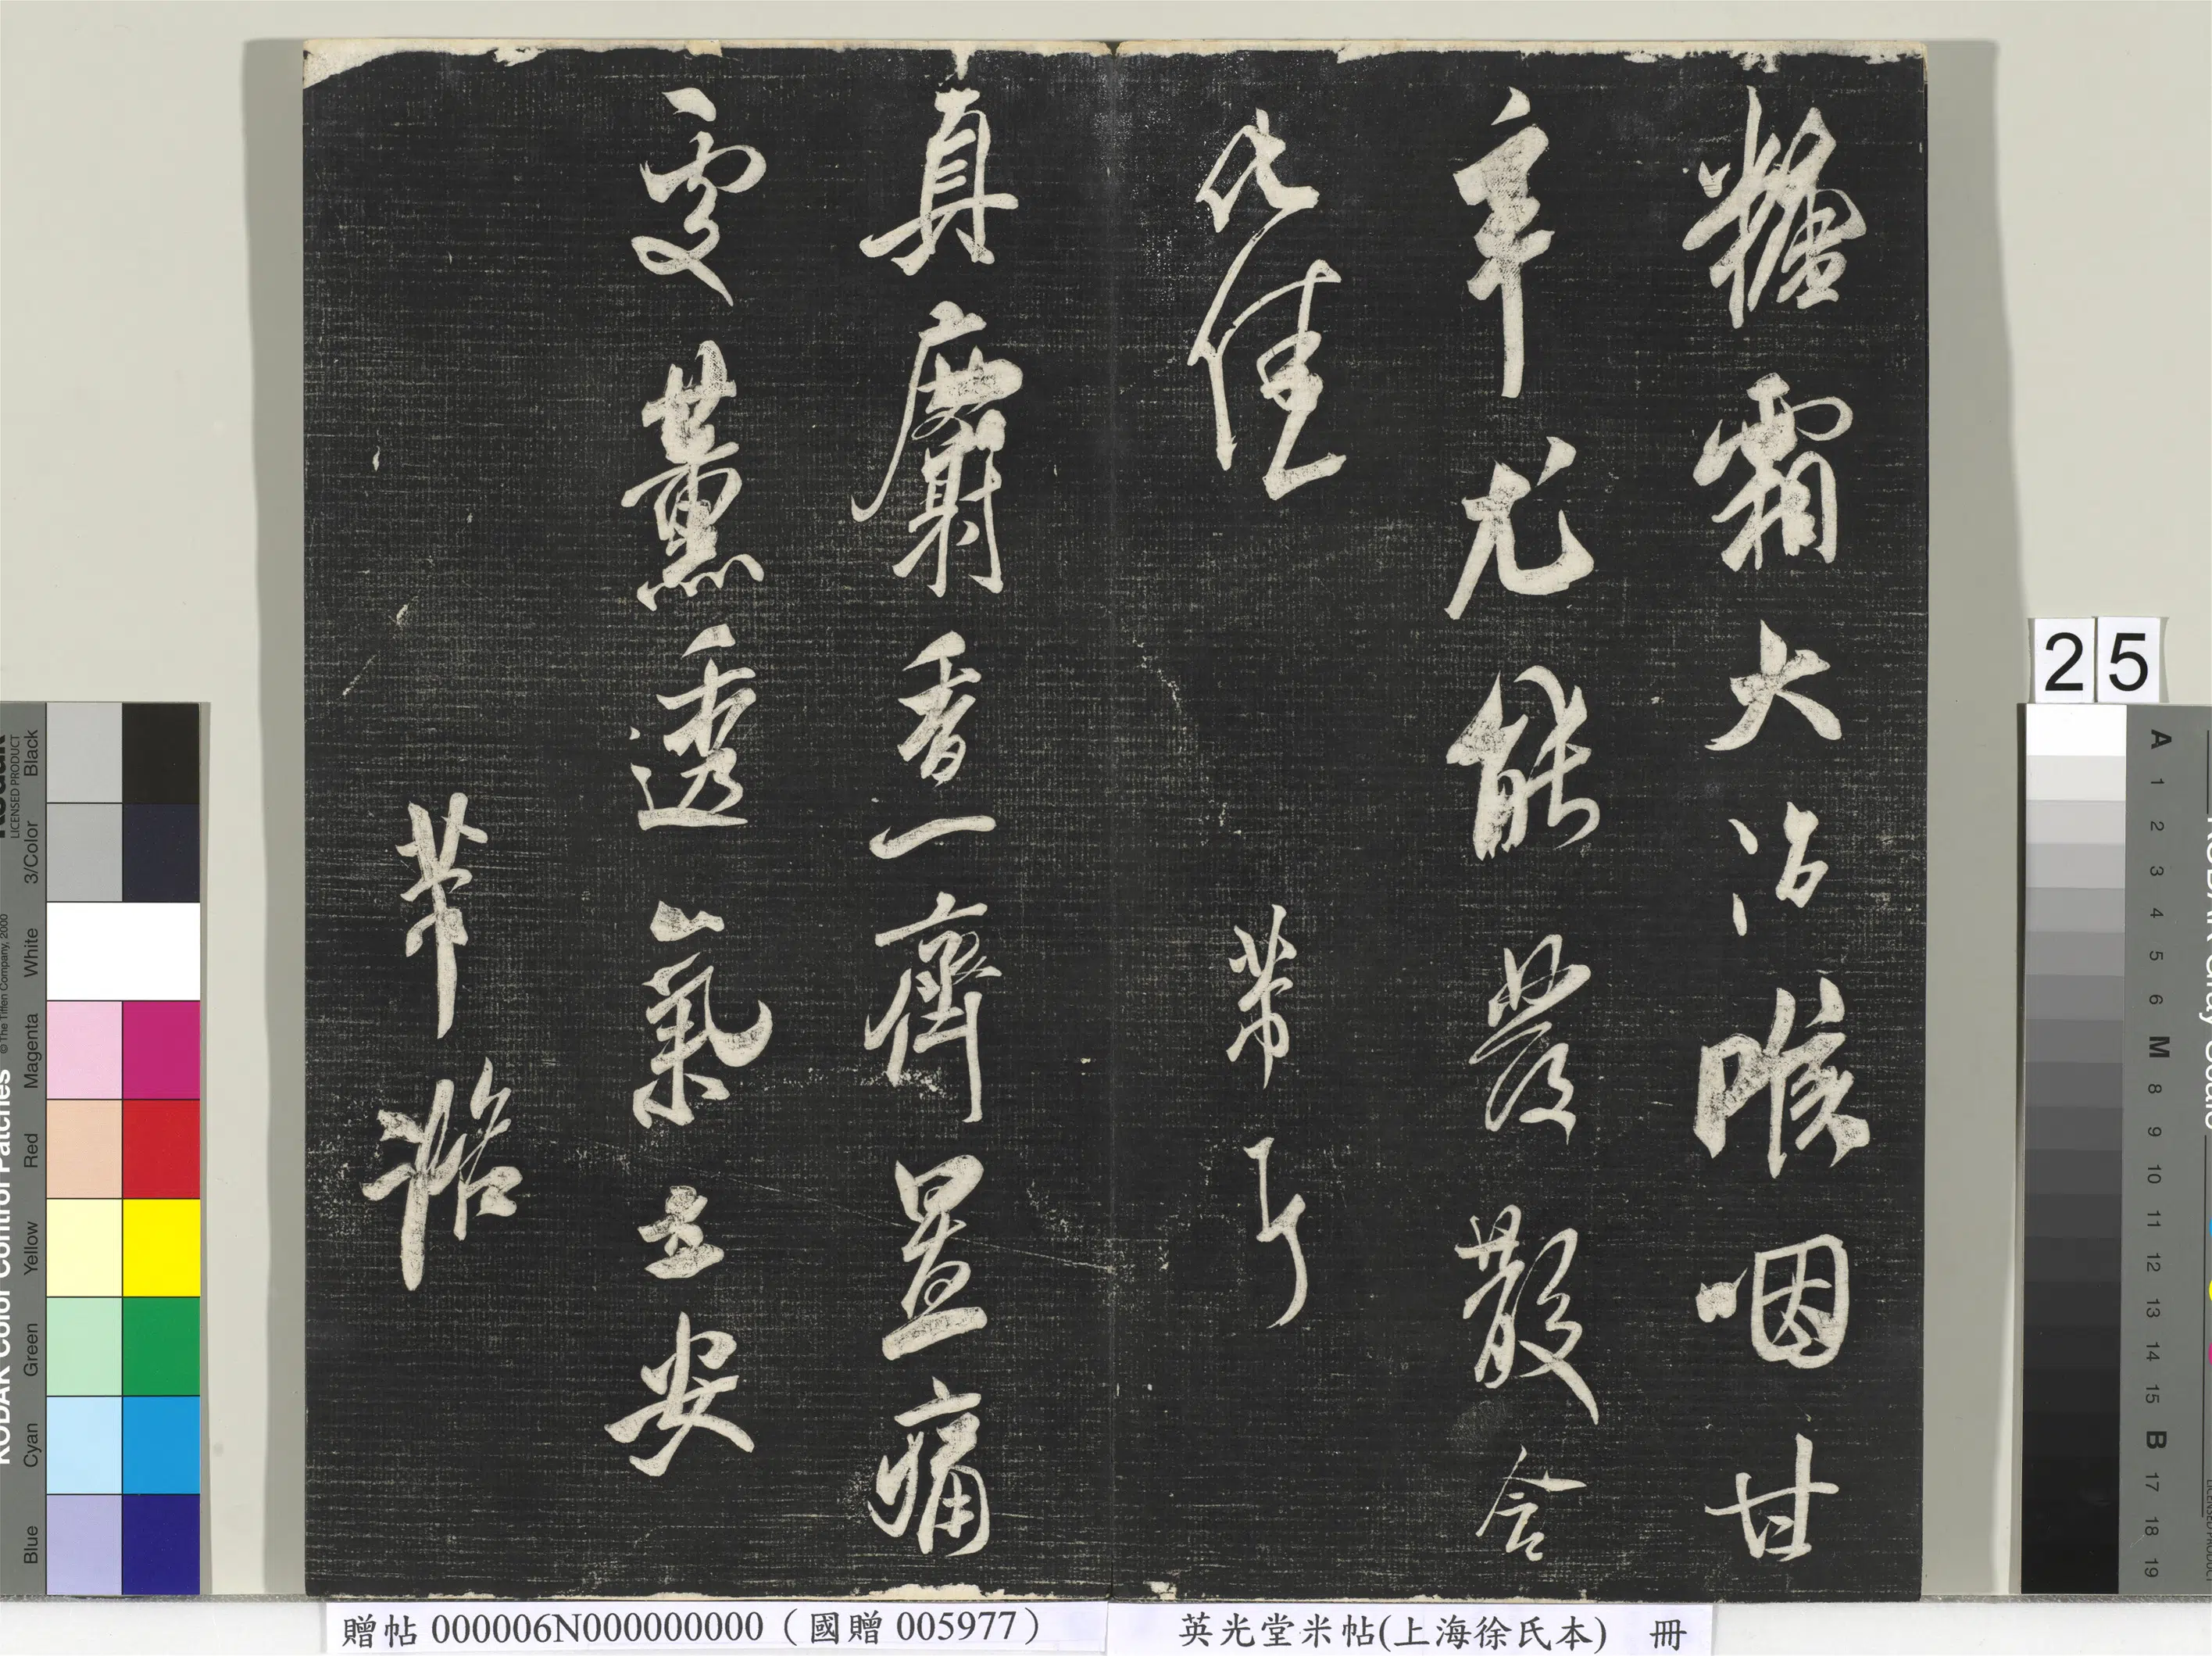 糖霜大治喉咽甘
辛尤能發散令
化佳
芾頓
真麝香一臍置痛
處薰透氣立安
芾諮
贈帖 000006N000000000（國贈 005977）
英光堂米帖(上海徐氏本) 冊
25
KODAK Color Control Patches
© The Tiffen Company, 2000
LICENSED PRODUCT
Blue
Cyan
Green
Yellow
Red
Magenta
White
3/Color
Black
A 1 2 3 4 5 6 M 8 9 10 11 12 13 14 15 B 17 18 19